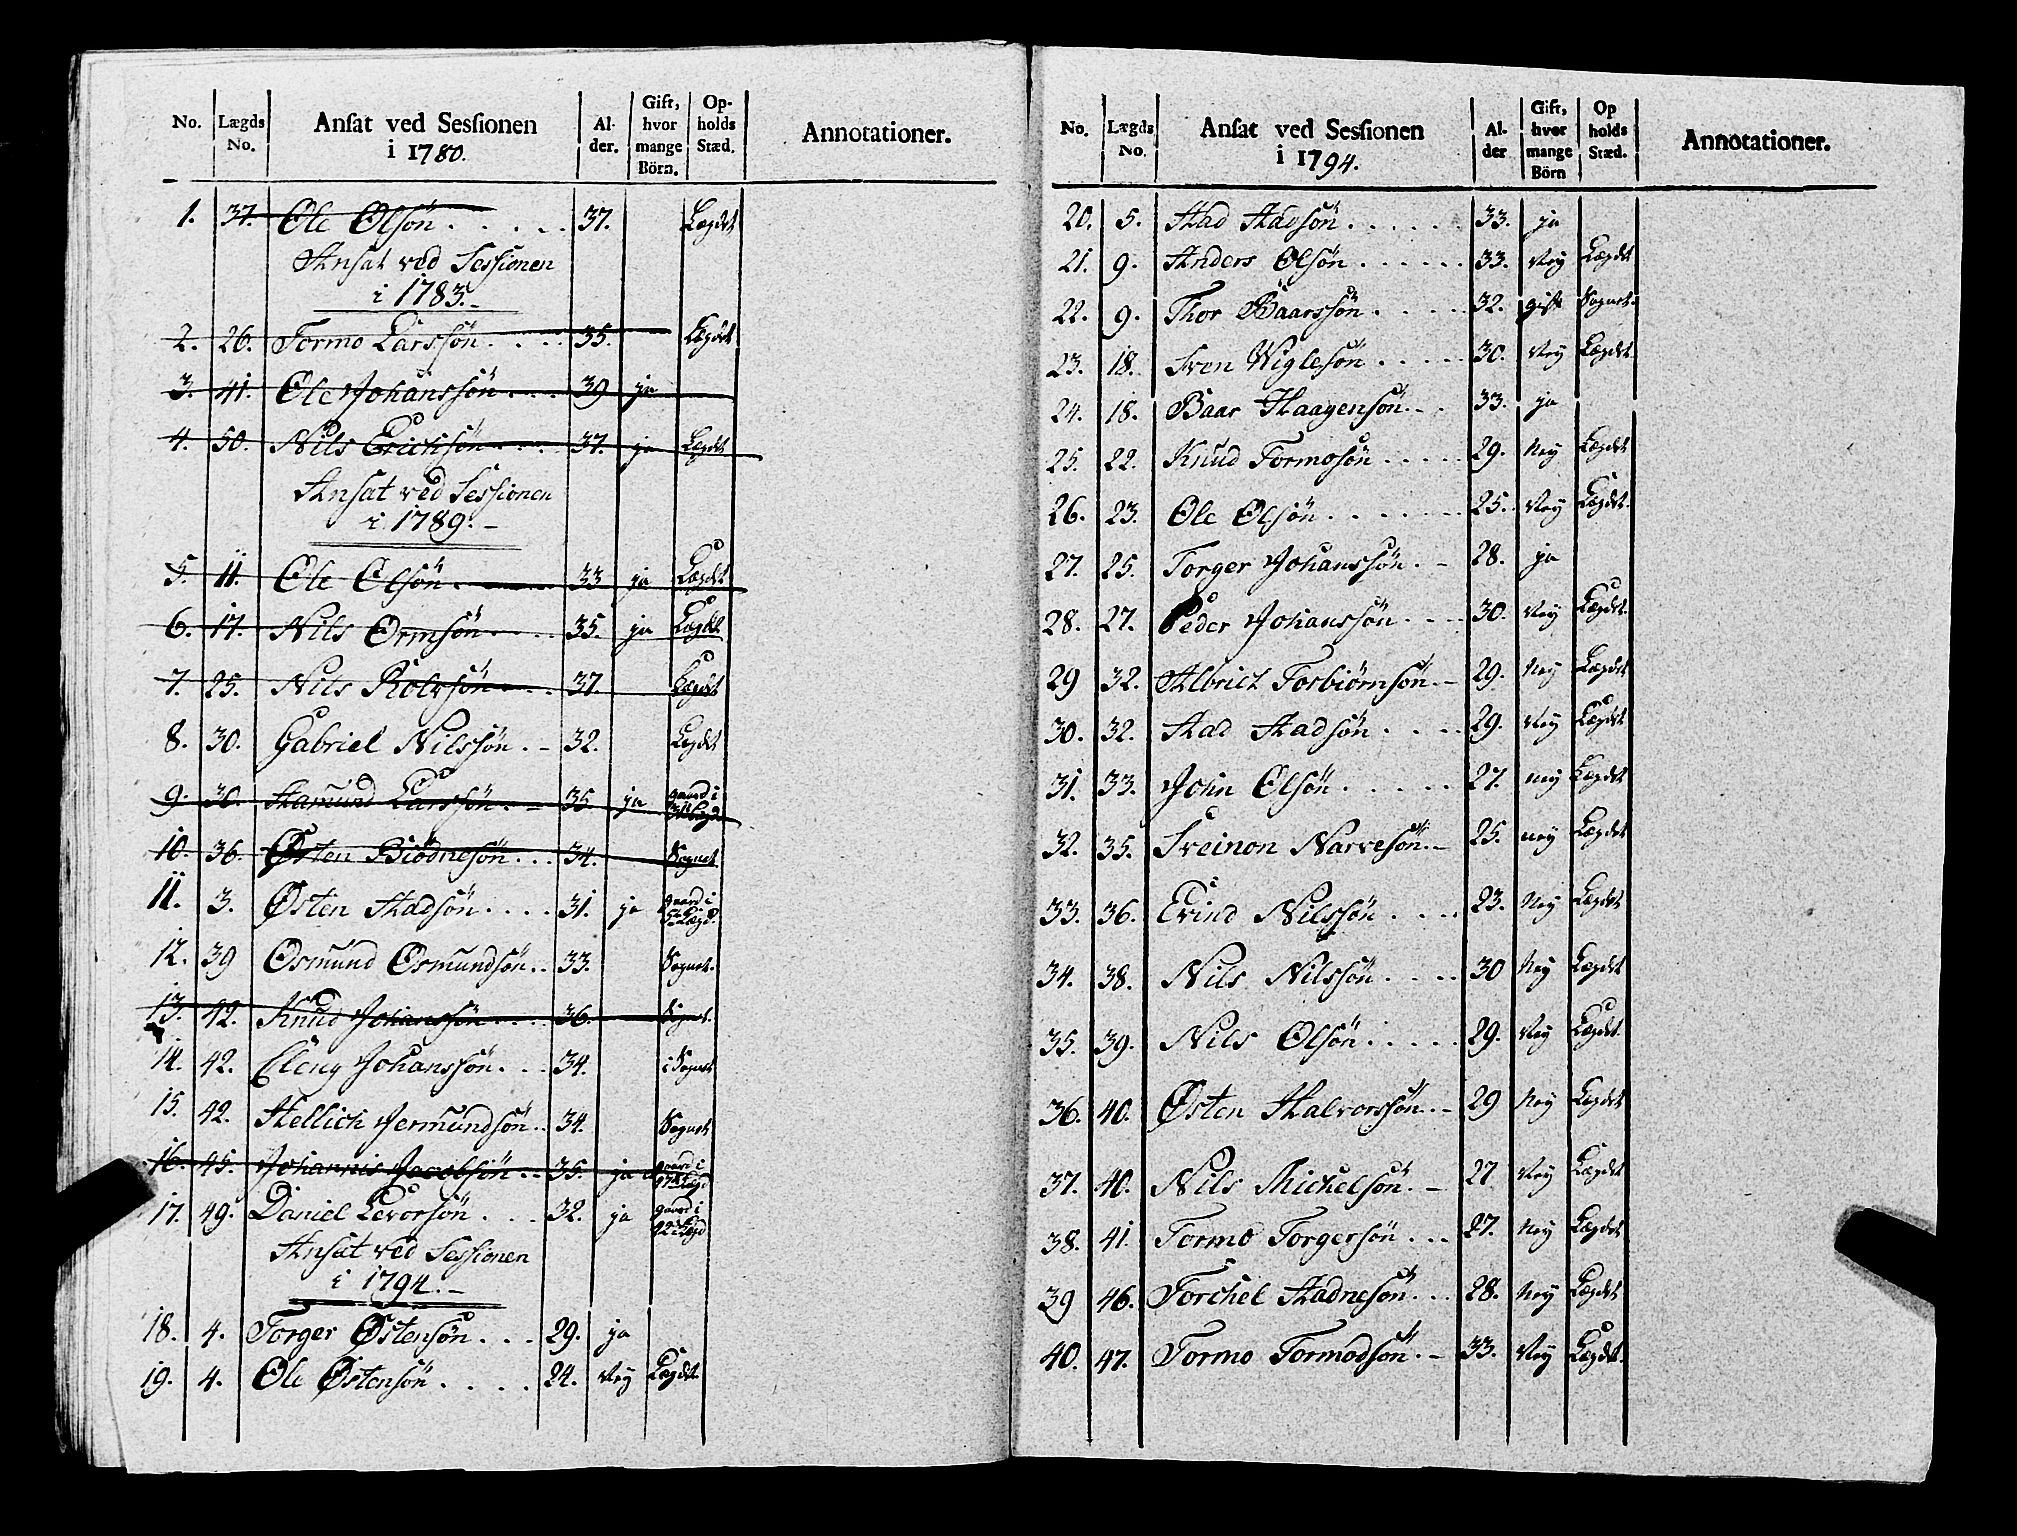 No. Lægds No. Ansat ved Sessionen i 1780. Al- der. Gift, hvor mange Börn. Op- holds Stæd. Annotationer.
1. 37. Ole Olsön 37. Lægdet
Ansat ved Sessionen
i 1783.
2. 26. Tormo Larssön 35. Lægdet
3. 41. Ole Johanssön 39 ja
4. 50. Nils Erichsön 37. ja Lægdet
Ansat ved Sessionen
i 1789.
5. 11. Ole Olsön 33 ja Lægdet
6. 17. Nils Ormsön 35. ja Lægdet
7. 25. Nils Rolvsön 37. Lægdet
8. 30. Gabriel Nilssön 32. Legdet
9. 30. Aamund Larssön 35 ja gaard i
10. 36. Østen Biödnesön 34. Sognet
11. 3. Østen Aadsön 31. ja gaard i Lægd.
12. 39 Osmund Osmundsön 33. Sognet.
13. 42. Knud Johanssön 36. Sognet.
14. 42. Eleng Johanssön 34. i Sognet
15. 42. Hellich Jermundsön 34. Sognet
16. 45. Johannis Jacobsön 35. ja gaard i Lægd
17. 49. Daniel Levorsön 32. ja gaard i 42 Lægd
Ansat ved Sessionen
i 1794.
18. 4. Torger Østensön 29. ja
19. 4. Ole Østensön 24. Ney Lægdet
No. Lægds No. Ansat ved Sessionen i 1794. Al- der Gift, hvor mange Börn Op holds Stæd. Annotationer.
20. 5. Aad Aadsön 33. ja
21. 9. Anders Olsön 33. Ney Lægdet
22. 9. Thor Baarssön 32. gift Sognet
23. 18. Sven Wiglesön 30. Ney Lægdet
24. 18. Baar Haagensön 33. ja
25. 22. Knud Tormosön 29. Ney Lægdet
26. 23. Ole Olsön 25. Ney Lægdet
27. 25. Torger Johanssön 28. ja
28. 27. Peder Johanssön 30. Ney Lægdet
29 32. Albrict Torbiörnsön 29. Ney Lægdet
30. 32. Aad Aadsön 29. Ney Lægdet
31. 33. John Olsön 27. ney Lægdet
32. 35. Sveinon Narvesön 25. ney Lægdet
33. 36. Evind Nilssön 23. Ney Lægdet
34. 38. Nils Nilssön 30 Ney Lægdet
35. 39. Nils Olsön 29. Ney Lægdet
36. 40. Østen Halvorssön 29 Ney Legdet
37. 40. Nils Michelsön 27 Ney Lægdet
38. 41. Tormo Torgersön 27. Ney Lægdet
39 46. Torchel Aadnesön 28. Ney Lægdet
40. 47. Tormo Tormodsön 33. Ney Lægdet